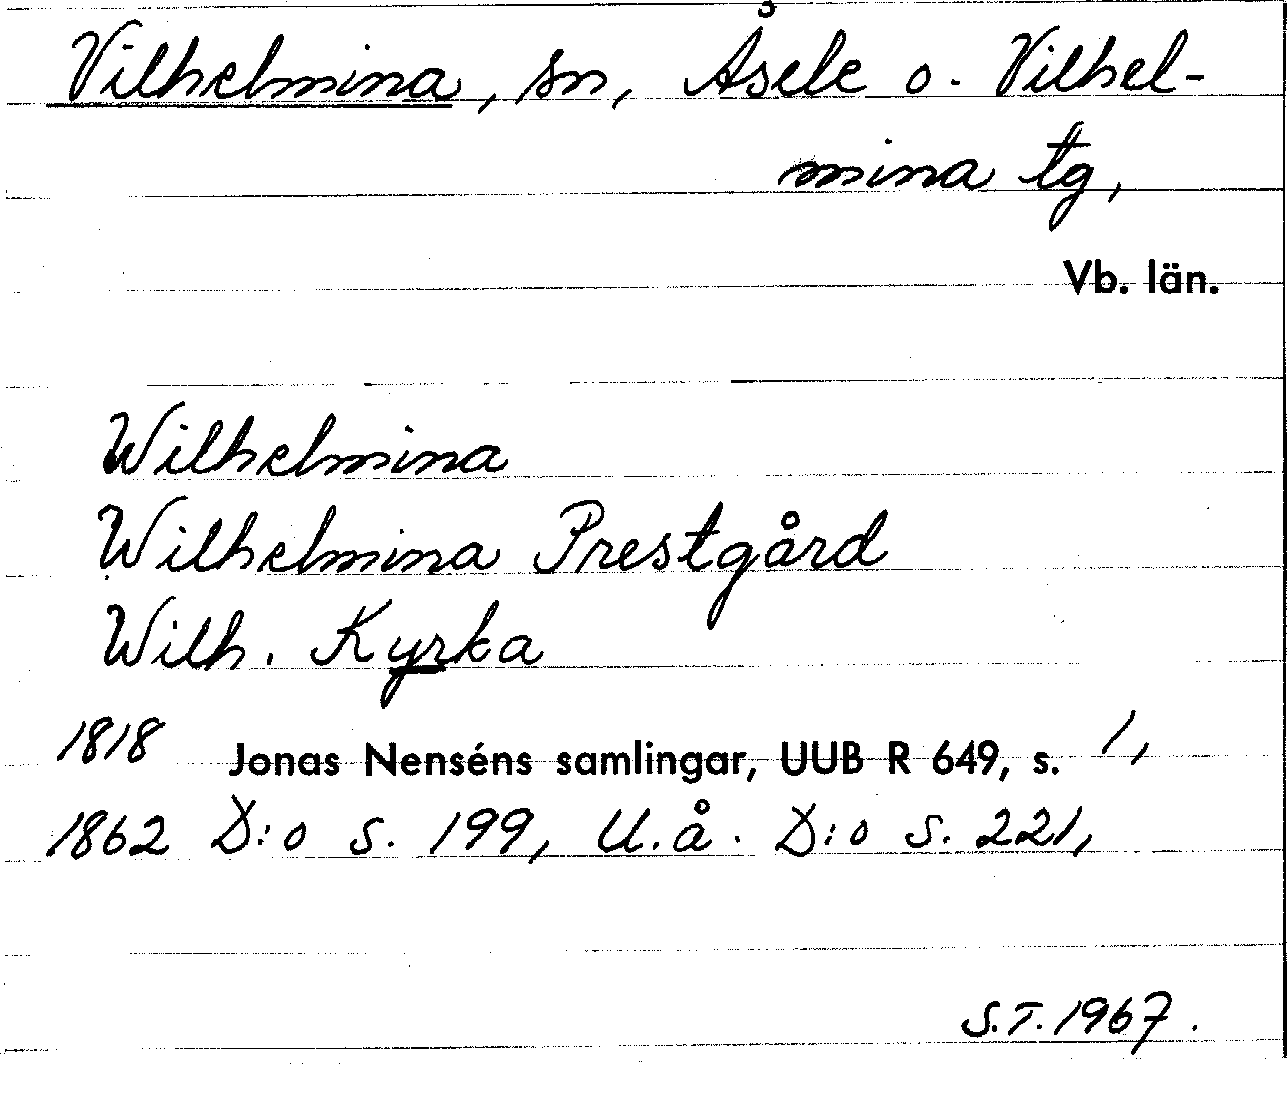 Vilhelmina, sn, Åsele o. Vilhel-
mina tg,
Vb. län.
Wilhelmina
Wilhelmina Prestgård
Wilh. Kyrka
1818 Jonas Nenséns samlingar, UUB R 649, s. 1,
1862 D:o s. 199, U.å. D:o s. 221,
S.T. 1967.